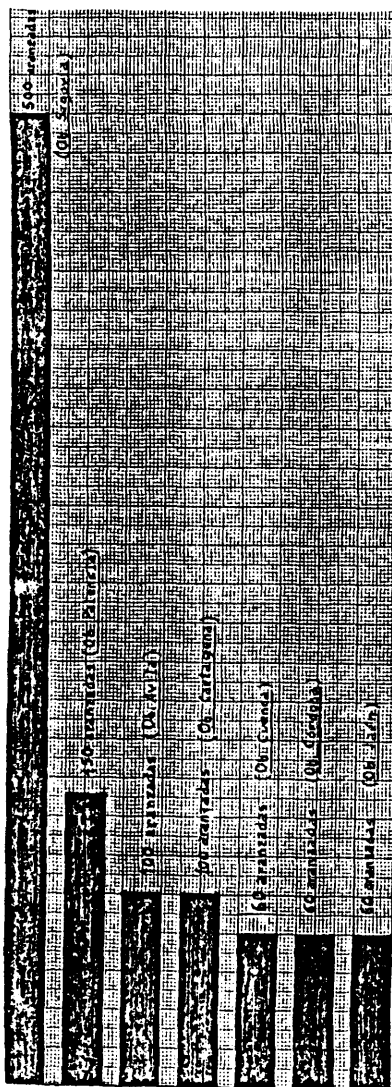 500 aranzadas
(Ob. Segovia)
150 aranzadas (Ob. Palencia)
100 aranzadas (Ob. Ávila)
100 aranzadas (Ob. Cartagena)
60 aranzadas (Ob. Cuenca)
60 aranzadas (Ob. Córdoba)
60 aranzadas (Ob. Jaén)